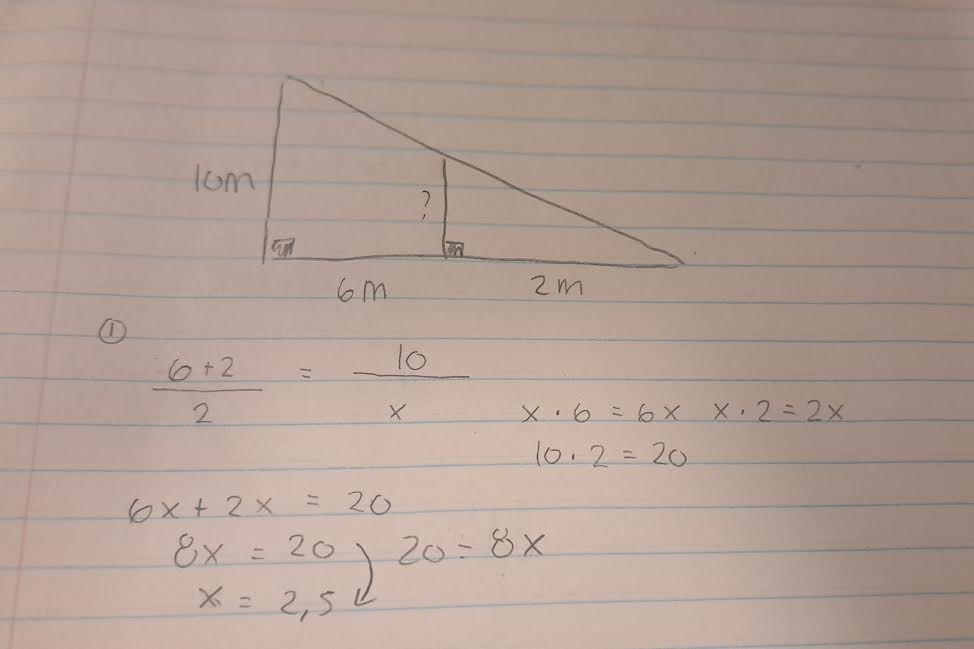 10m
?
6m 2m
①
6+2 = 10
2 x
x · 6 = 6x x · 2 = 2x
10 · 2 = 20
6x + 2x = 20
8x = 20 20 ÷ 8x
x = 2,5